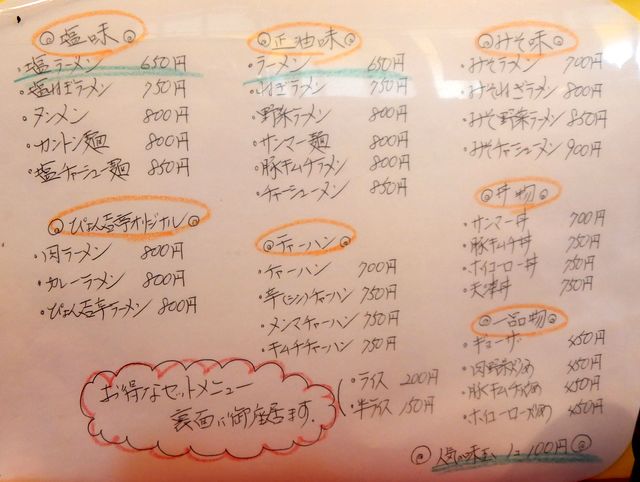 塩味
・塩ラーメン 650円
・塩ねぎラーメン 750円
・タンメン 800円
・カントン麺 800円
・塩チャーシュー麺 850円
正油味
・ラーメン 650円
・ねぎラーメン 750円
・野菜ラーメン 800円
・サンマー麺 800円
・豚キムチラーメン 800円
・チャーシューメン 850円
みそ味
・みそラーメン 700円
・みそねぎラーメン 800円
・みそ野菜ラーメン 850円
・みそチャーシューメン 900円
ぴょん吉亭オリジナル
・肉ラーメン 800円
・カレーラーメン 800円
・ぴょん吉亭ラーメン 800円
チャーハン
・チャーハン 700円
・辛(シン)チャーハン 750円
・メンマチャーハン 750円
・キムチチャーハン 750円
・ライス 200円
・半ライス 150円
丼物
・サンマー丼 700円
・豚キムチ丼 750円
・ホイコーロー丼 750円
・天津丼 750円
一品物
・ギョーザ 450円
・肉野菜炒め 450円
・豚キムチ炒め 450円
・ホイコーロー炒め 450円
お得なセットメニュー
裏面に御座居ます.
人気の味玉 1コ 100円